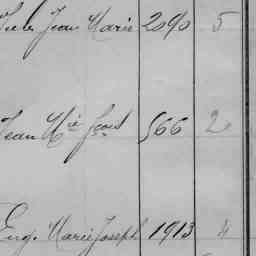 Jean Marie 2090 5
Jean Mie 566 2
Eug. Marie Joseph 1913 4